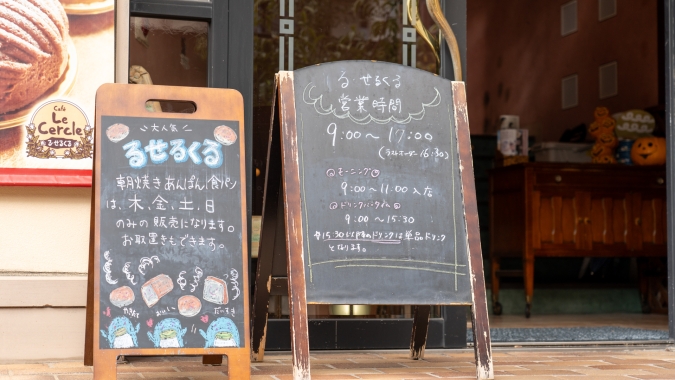 Café
Le
Cercle
るせるくる
大人気
るせるくる
朝焼きあんぱん/食パン
は、木、金、土、日
のみの販売になります。
お取置きもできます。
るせるくる
営業時間
9:00〜17:00
(ラストオーダー 16:30)
モーニング
9:00〜11:00入店
ドリンクバータイム
9:00〜15:30
15:30以降のドリンクは単品ドリンク
となります。